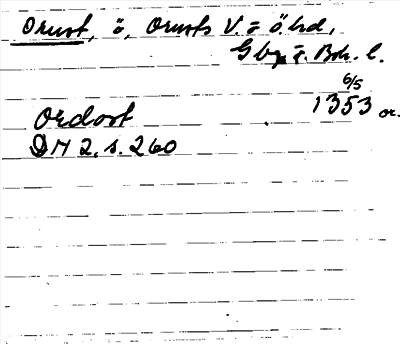 Orust, ö, Orusts V. o ö. hd,
Gbg o. Boh. l.
6/5
1353 or.
Ordost
DN 2. s. 260